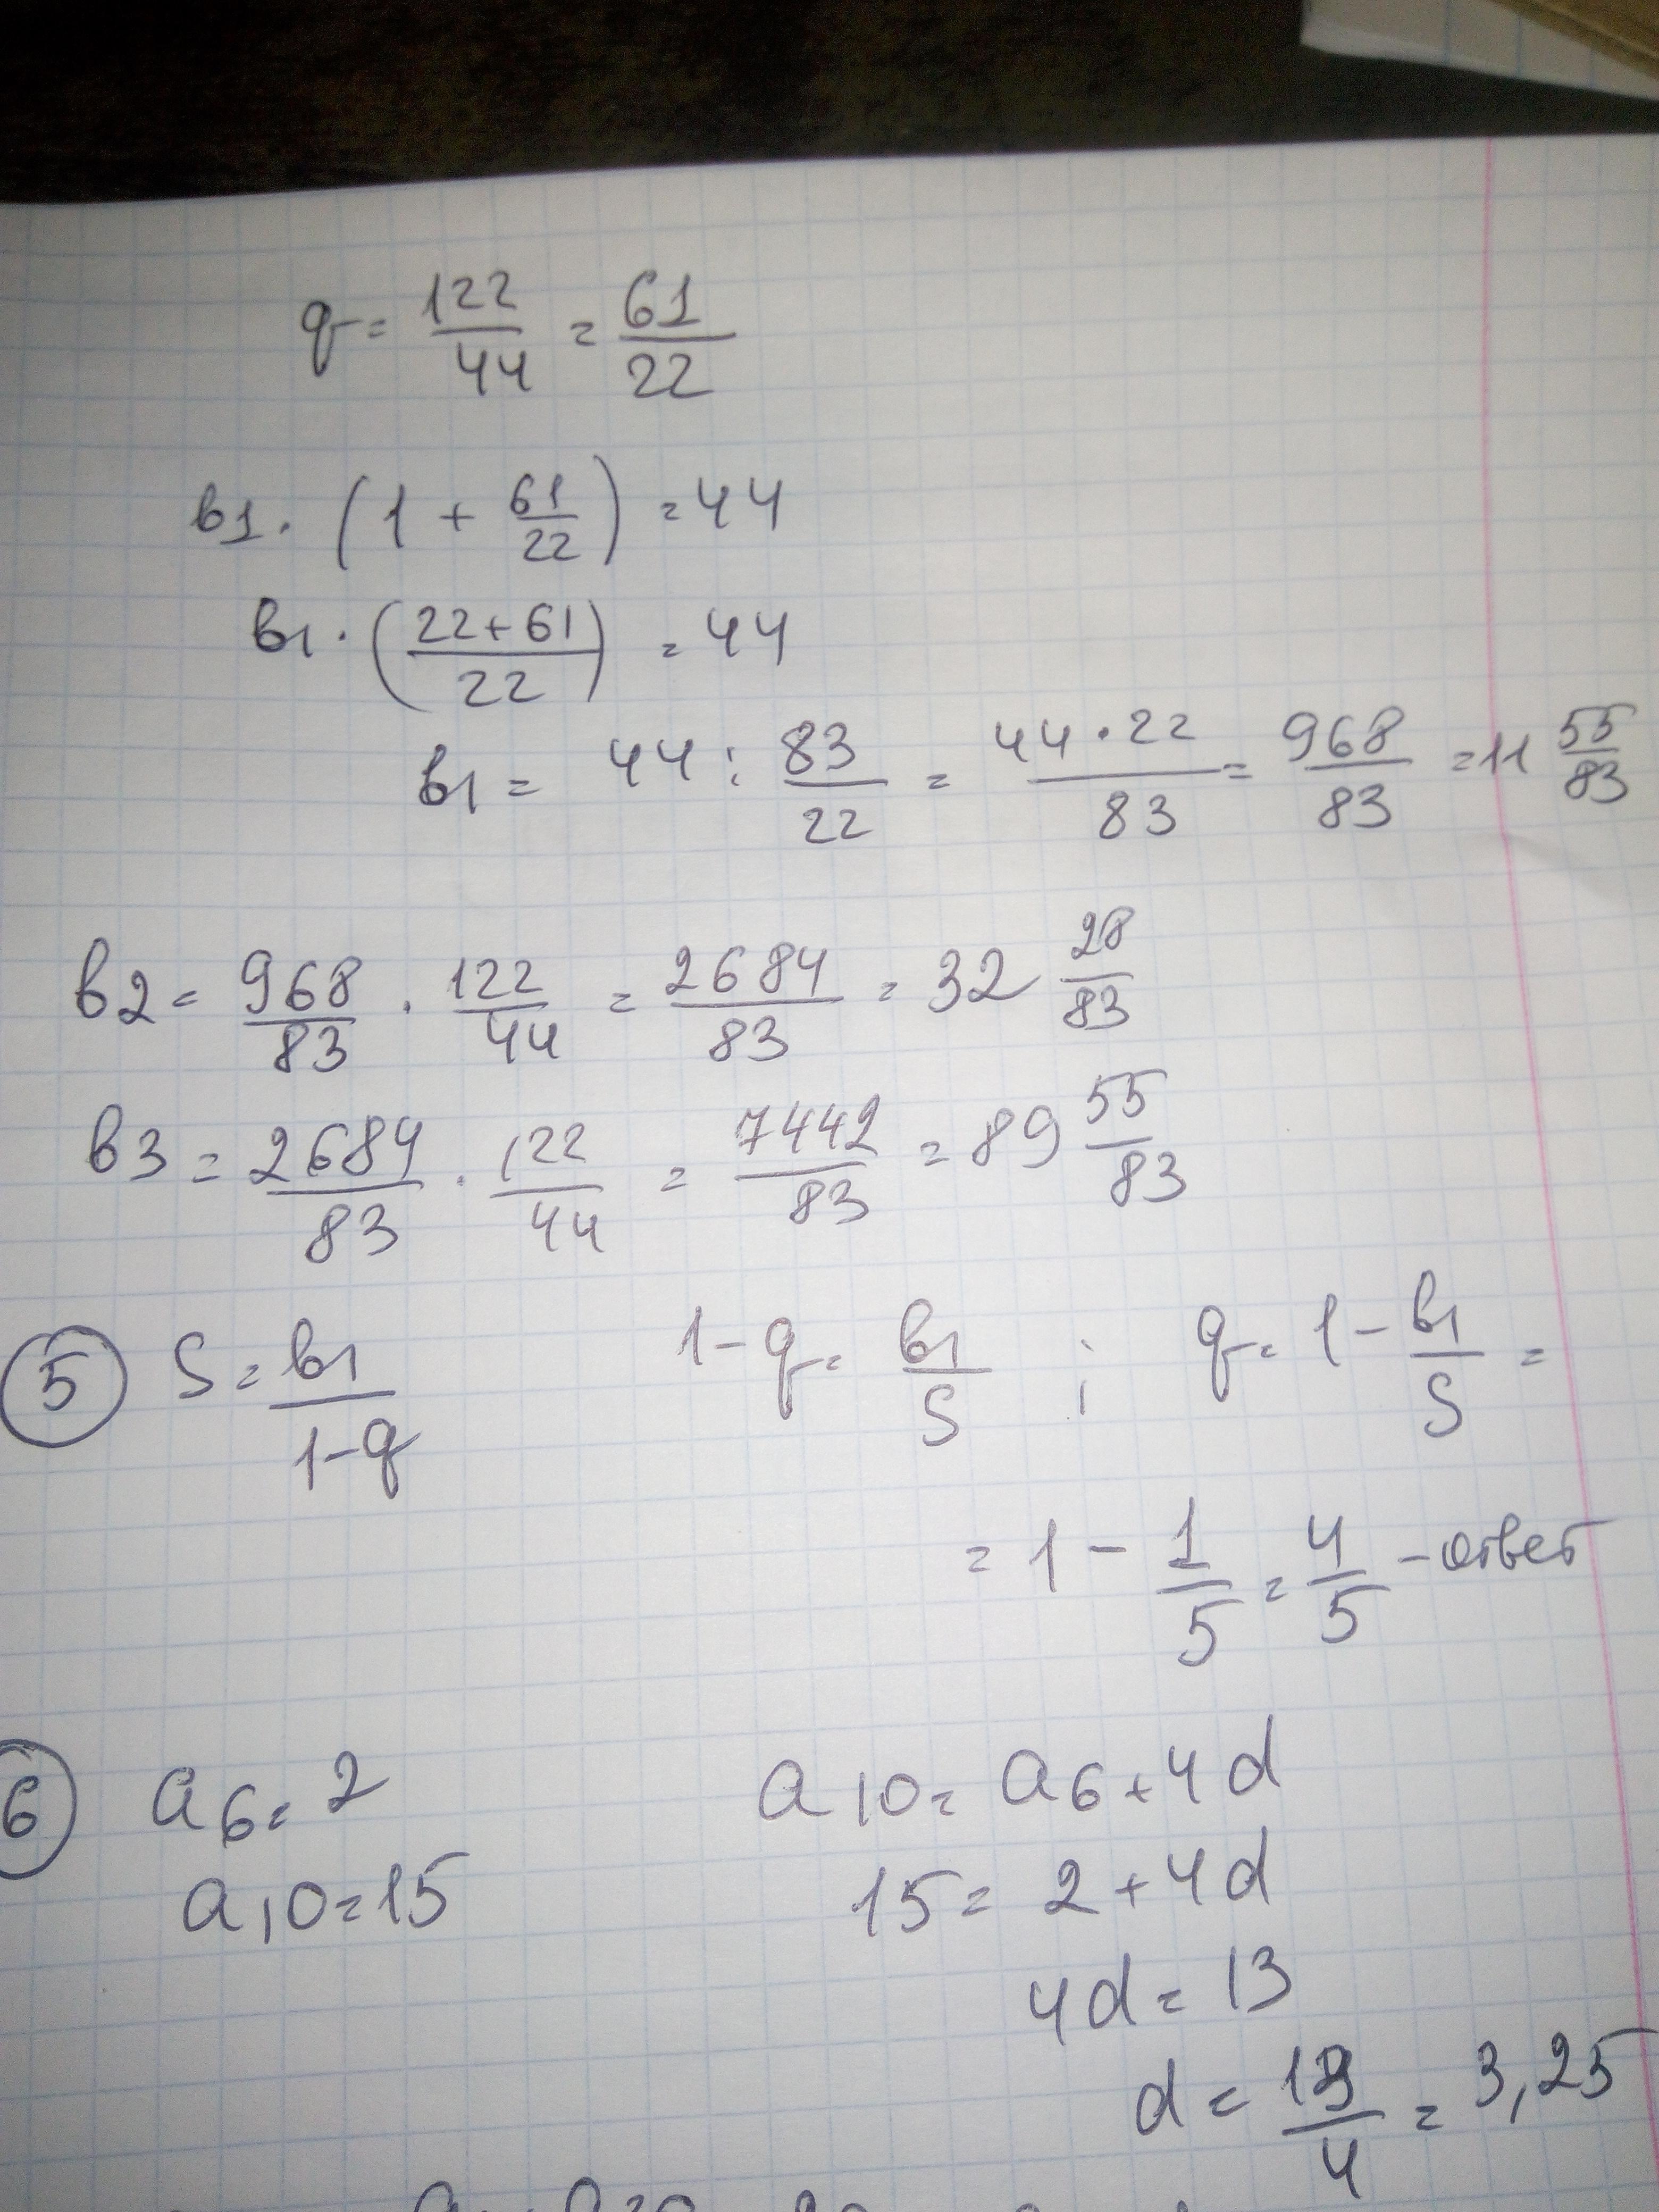 q = 122/44 = 61/22
в1 · (1 + 61/22) = 44
в1 · ((22+61)/22) = 44
в1 = 44 : 83/22 = 44·22/83 = 968/83 = 11 55/83
в2 = 968/83 · 122/44 = 2684/83 = 32 28/83
в3 = 2684/83 · 122/44 = 7442/83 = 89 55/83
5 S = в1/(1-q) 1-q = в1/S ; q = 1 - в1/S =
= 1 - 1/5 = 4/5 - ответ
6 a6 = 2 a10 = a6 + 4d
a10 = 15 15 = 2 + 4d
4d = 13
d = 13/4 = 3,25